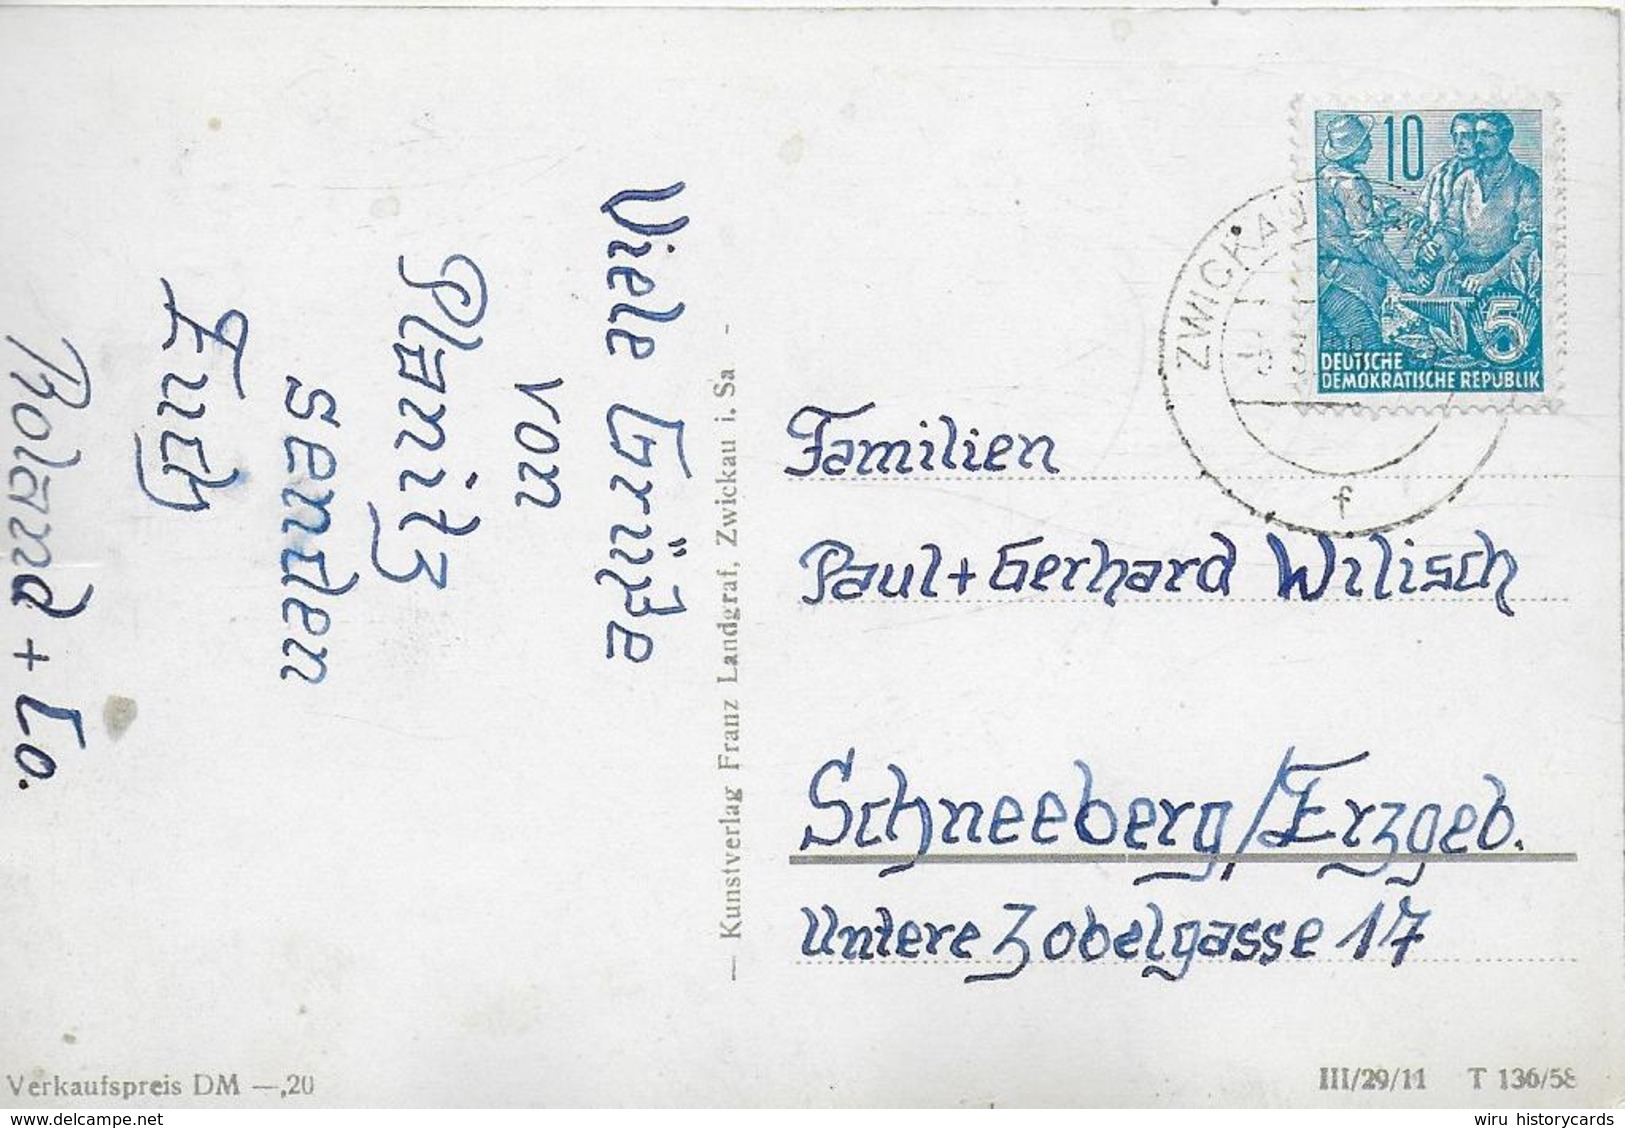 Viele Grüße
von
Planitz
senden
Euch
Roland + Co.
— Kunstverlag Franz Landgraf, Zwickau i. Sa -
10
5
DEUTSCHE
DEMOKRATISCHE REPUBLIK
ZWICKAU
f
Familien
Paul + Gerhard Wilisch
Schneeberg/Erzgeb.
Untere Zobelgasse 17
Verkaufspreis DM —,20
III/29/11 T 136/58
wiru historycards